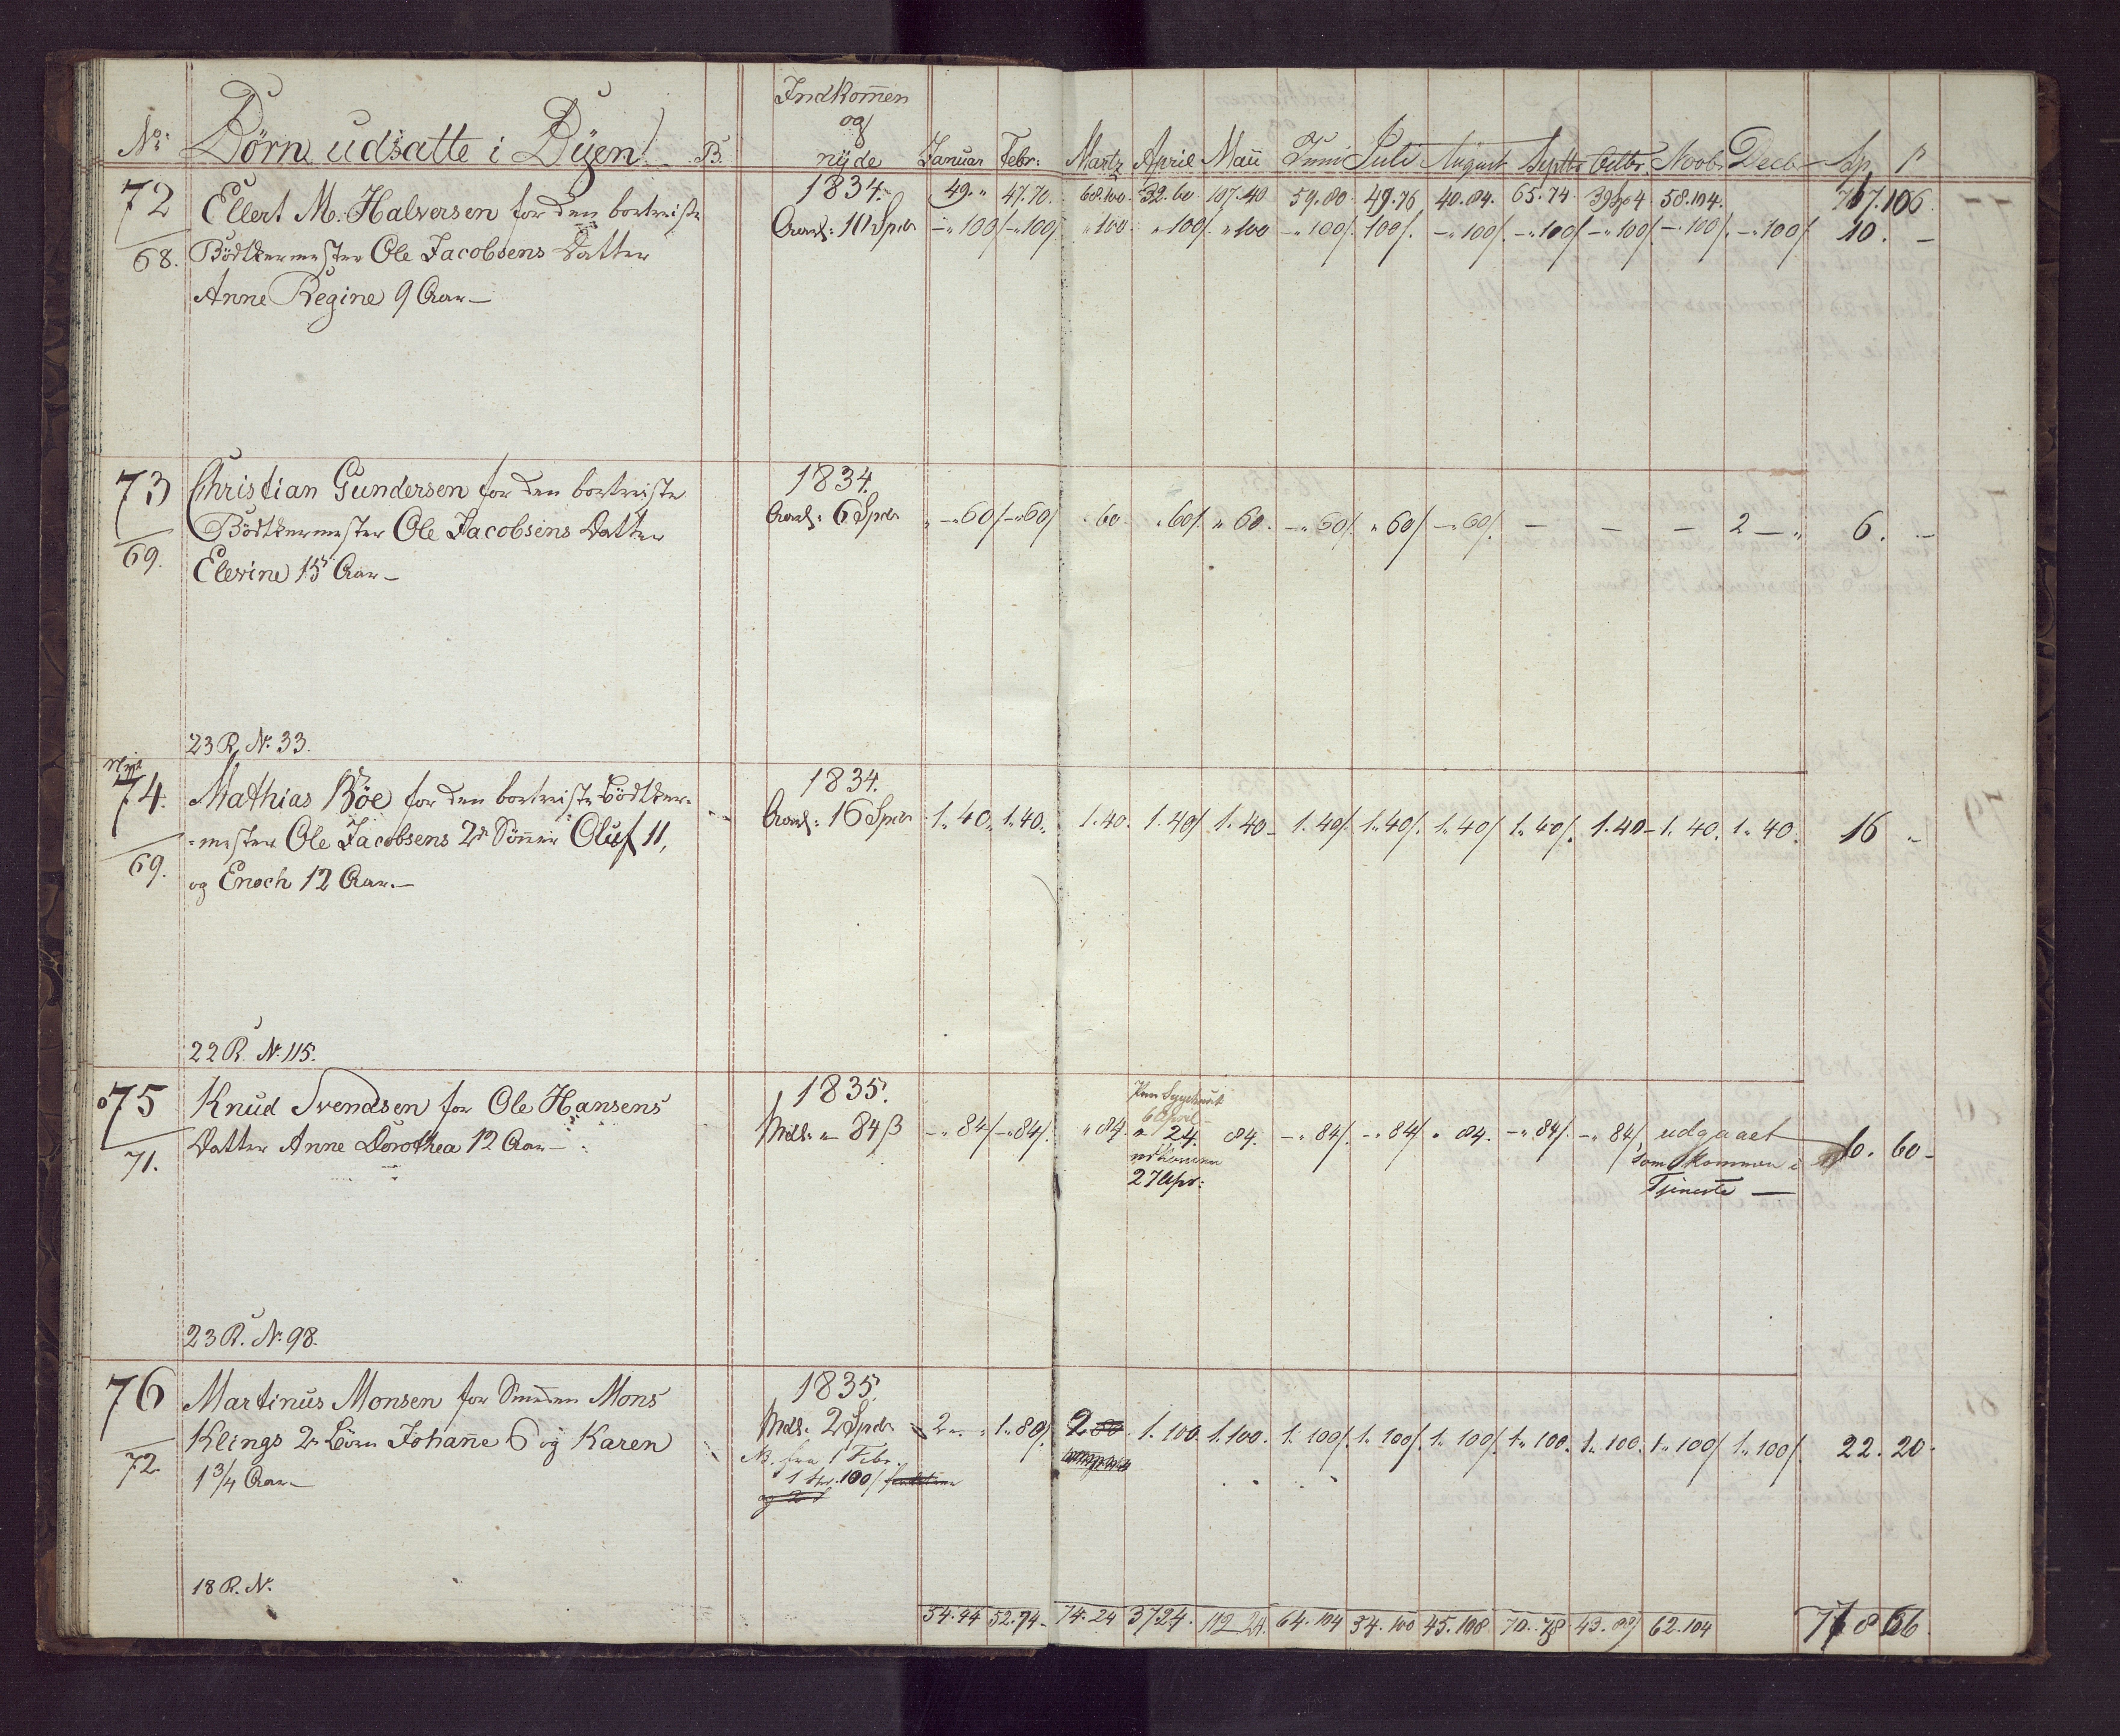 No: Börn udsatte i Byen B. Indkomen og nyde Januar Febr: Martz April Maii Juni Juli August Septbr Octbr. Novbr Decb Sp. ß
49. „ 47.70. 68.100. 32.60 107.40 59.80 49.76 40.84. 65.74 58.104. 106
72
68.
Ellert M. Halversen for den bortreiste
Bödkermester Ole Jacobsens Datter
Anne Regine 9 Aar—
1834.
Aarl: 10 Spdr —„100/ —„100/ „100 „100/. „100 —„100/. 100/. —„100/. —„100/ —„100/ —„100/. —„100/ 10. —
73
69.
Christian Gundersen for den bortreiste
Bödkermester Ole Jacobsens Datter
Elevine 15 Aar—
1834.
Aarl: 6 Spdr „—„60/ —„60/ „60. „60/. „60. —„60/. „60/ —„60/. — — — 2 — „ 6. —
23 R. No. 33.
74.
69.
Mathias Böe for den bortreiste Bödker-
-mester Ole Jacobsens 2de Sönner Oluf 11,
og Enoch 12 Aar.—
1834.
Aarl: 16 Spdr 1„40„ 1„40„ 1.40. 1.40/. 1.40— 1.40/. 1„40/. 1„40/ 1„40/. 1.40— 1„40. 1„40. 16 „
22 R. No. 115.
75
71.
Knud Svendsen for Ole Hansens
Datter Anne Dorothea 12 Aar—
1835.
Mdl: „ 84 ß —„84/ —„84/. „84. 6 April „ 24. 27 Apr: 84. —„84/. —„84/ „84. —„84/. —„84/. udgaaet
som kommen i
Tjeneste —
60—
23 R. No. 98.
76
72
Martinus Monsen for Smeden Mons
Klings 2de Börn Johanne 6 og Karen
1 3/4 Aar—
1835.
Mdl: 2 Spdr 2„— „ 1„80/. 1.100. 1.100. 1.100/. 1„100/. 1„100/. 1„100. 1„100. 1„100/ 1„100/. 22. 20.
NB. fra 1 Febr.
100/
18 R. No.
54.44 52.74— 74.24 37 24. 112 24. 64.104 54.100 45.108 70.78 62.104